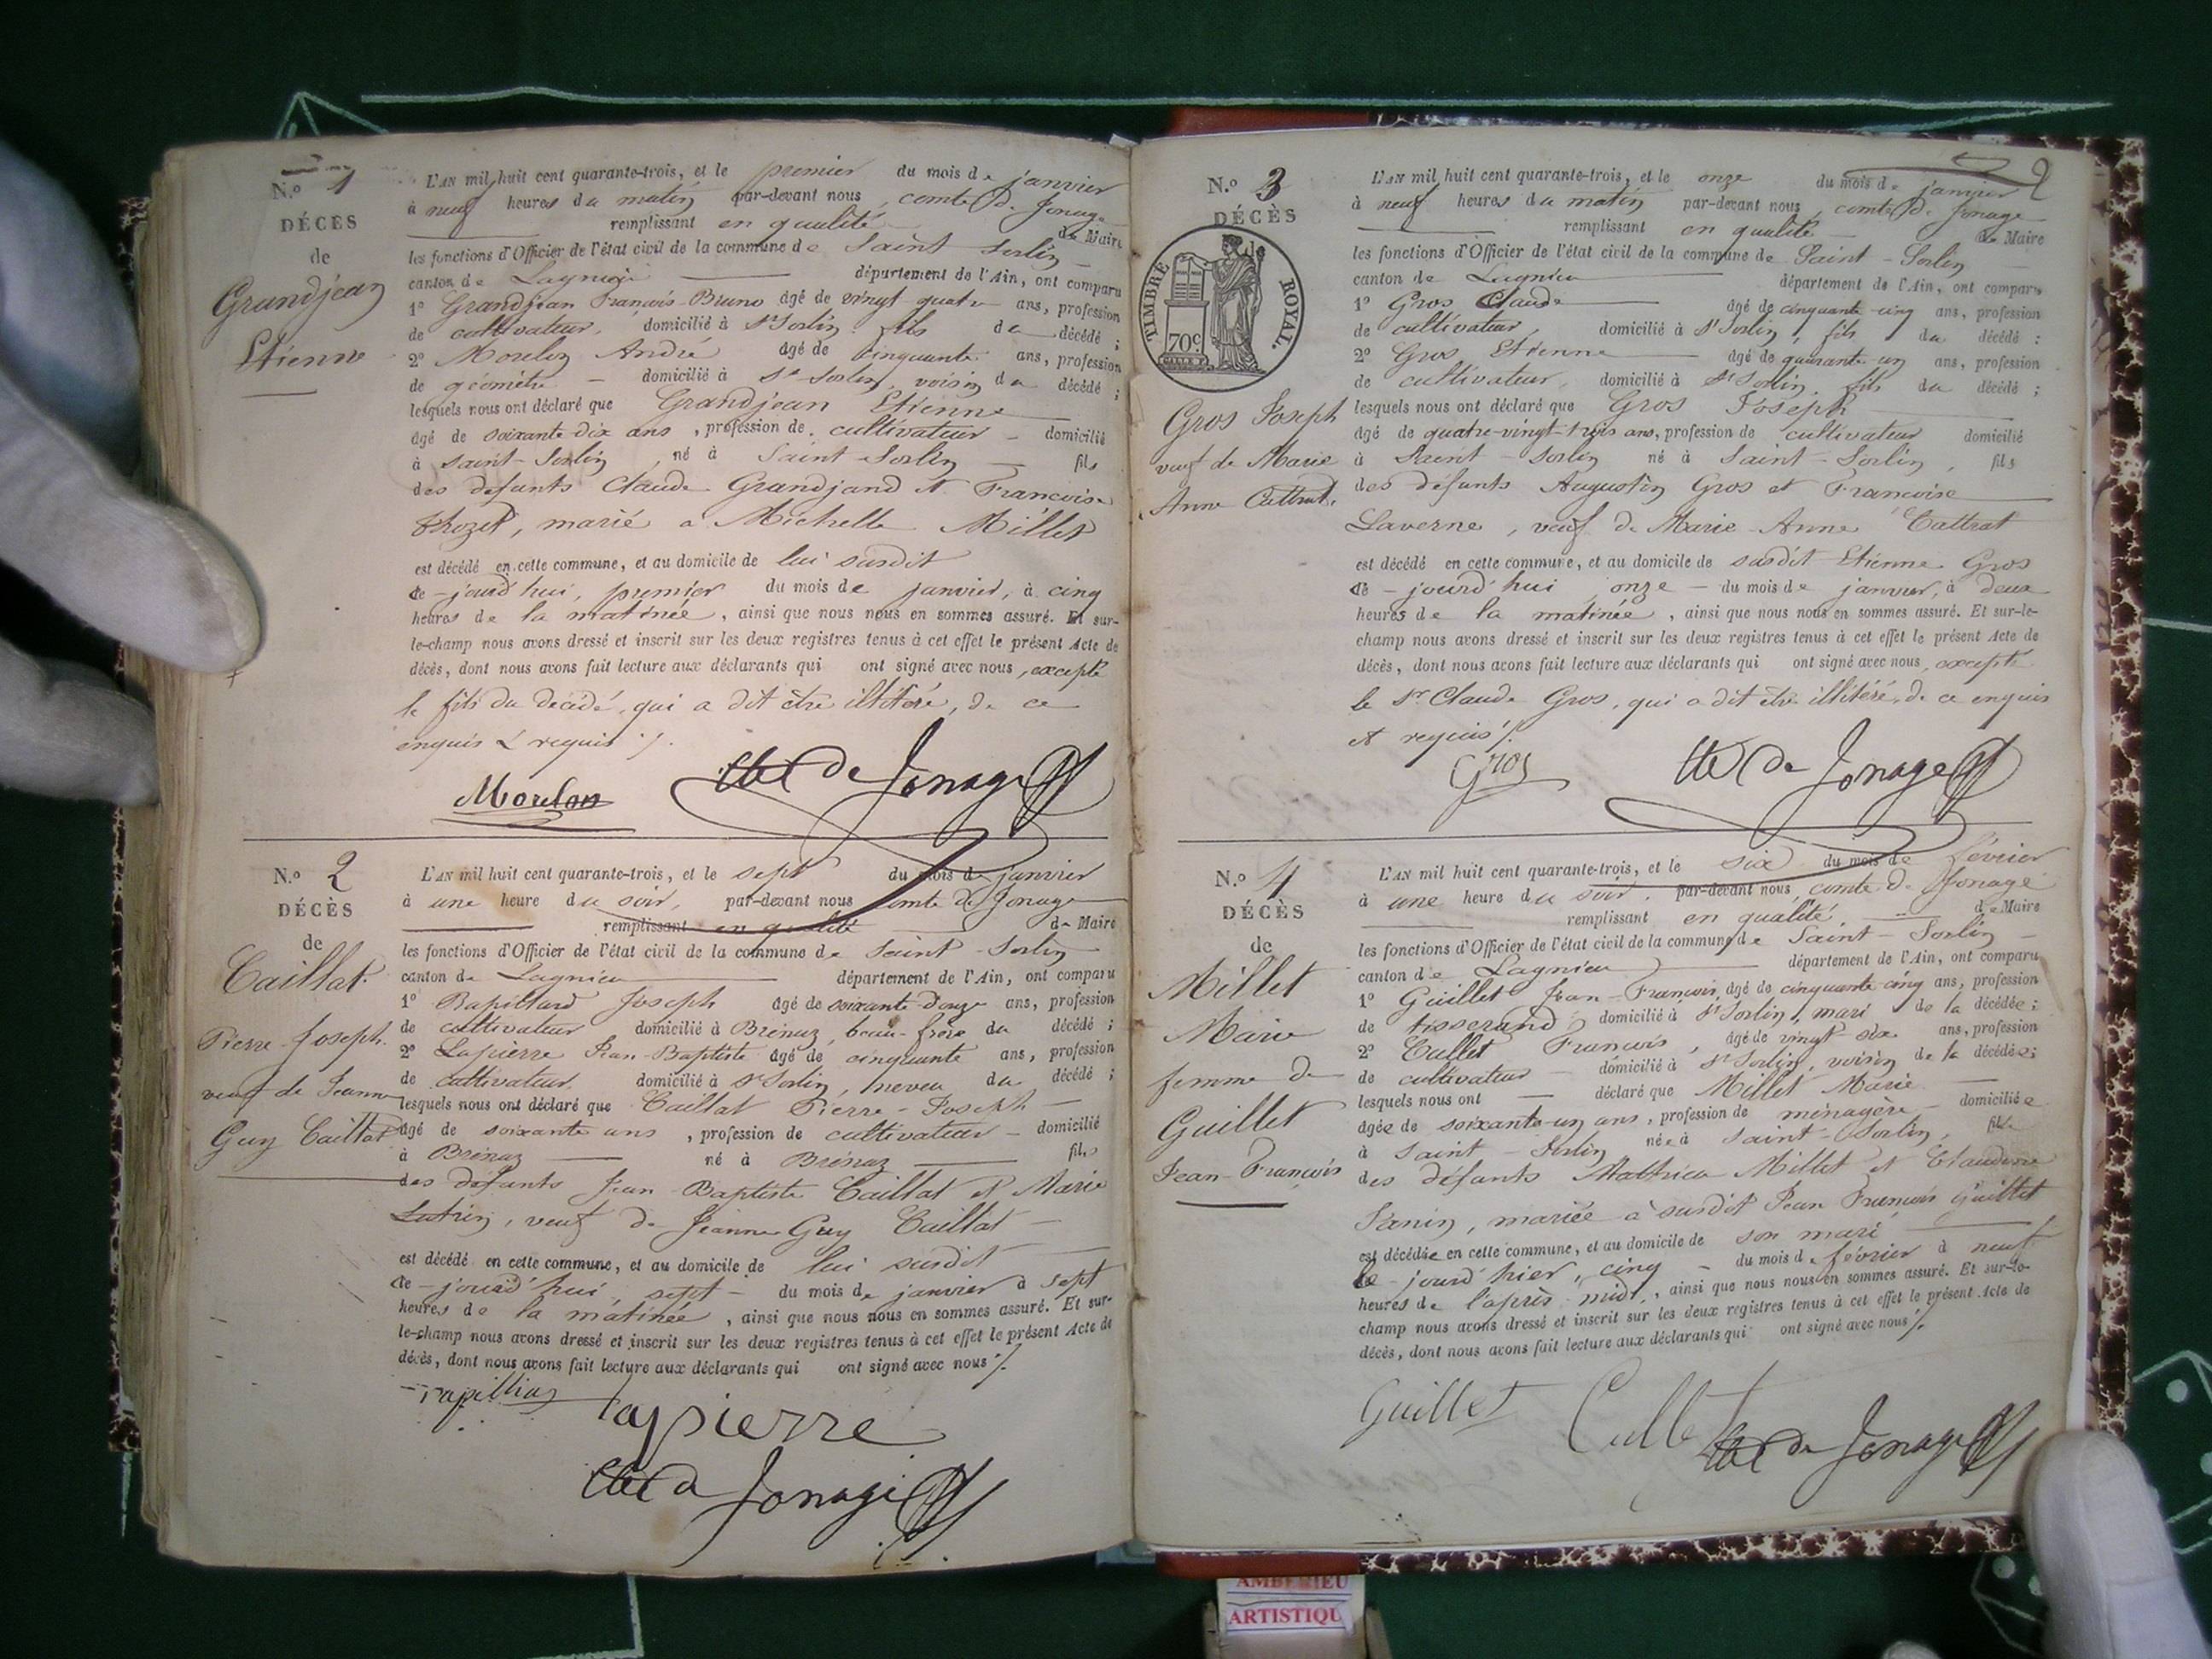 N.º 1
DÉCÈS
de
Grandjean
Etienne
L'AN mil huit cent quarante-trois, et le premier du mois de janvier
à neuf heures du matin par-devant nous, comte de Jonage
remplissant en qualité de Maire
les fonctions d'Officier de l'état civil de la commune de Saint Sorlin
canton de Lagnieu département de l'Ain, ont comparu
1º Grandjean François-Bruno âgé de vingt quatre ans, profession
de cultivateur, domicilié à St Sorlin fils du décédé ;
2º Moulon André âgé de cinquante ans, profession
de géomètre domicilié à St Sorlin, voisin du décédé ;
lesquels nous ont déclaré que Grandjean Etienne
âgé de soixante-dix ans, profession de cultivateur domicilié
à Saint-Sorlin, né à Saint-Sorlin fils
des défunts Claude Grandjand et Francoise
Thozet, marié à Michelle Millet
est décédé en cette commune, et au domicile de lui susdit
ce-jourd'hui, premier du mois de janvier, à cinq
heures de la matinée, ainsi que nous nous en sommes assuré. Et sur-
le-champ nous avons dressé et inscrit sur les deux registres tenus à cet effet le présent Acte de
décès, dont nous avons fait lecture aux déclarants qui ont signé avec nous, excepté
le fils du décédé, qui a dit être illitéré, de ce
enquis & requis ./.
Moulon Cte de Jonage
N.º 2
DÉCÈS
de
Caillat
Pierre-Joseph
veuf de Jeanne
Guy Caillat
L'AN mil huit cent quarante-trois, et le sept du mois de janvier
à une heure du soir, par-devant nous comte de Jonage
remplissant en qualité de Maire
les fonctions d'Officier de l'état civil de la commune de Saint-Sorlin
canton de Lagnieu département de l'Ain, ont comparu
1º Rapillard Joseph âgé de soixante-douze ans, profession
de cultivateur domicilié à Brénaz, beau-frère du décédé ;
2º Lapierre Jean-Baptiste âgé de cinquante ans, profession
de cultivateur domicilié à St Sorlin, neveu du décédé ;
lesquels nous ont déclaré que Caillat Pierre-Joseph
âgé de soixante ans, profession de cultivateur domicilié
à Brénaz né à Brénaz fils
des défunts Jean-Baptiste Caillat et Marie
veuf de Jeanne Guy Caillat
est décédé en cette commune, et au domicile de lui susdit
ce-jourd'hui, sept du mois de janvier à sept
heures de la matinée, ainsi que nous nous en sommes assuré. Et sur-
le-champ nous avons dressé et inscrit sur les deux registres tenus à cet effet le présent Acte de
décès, dont nous avons fait lecture aux déclarants qui ont signé avec nous ./.
lapierre
Cte de Jonage
2
N.º 3
DÉCÈS
de
TIMBRE ROYAL.
70c
Gros Joseph
veuf de Marie
Anne Cattrat
L'AN mil huit cent quarante-trois, et le onze du mois de janvier
à neuf heures du matin par-devant nous, comte de Jonage
remplissant en qualité de Maire
les fonctions d'Officier de l'état civil de la commune de Saint-Sorlin
canton de Lagnieu département de l'Ain, ont comparu
1º Gros Claude âgé de cinquante-cinq ans, profession
de cultivateur, domicilié à St Sorlin, fils du décédé ;
2º Gros Etienne âgé de quarante-un ans, profession
de cultivateur, domicilié à St Sorlin, fils du décédé ;
lesquels nous ont déclaré que Gros Joseph
âgé de quatre-vingt-trois ans, profession de cultivateur domicilié
à Saint-Sorlin né à Saint-Sorlin, fils
des défunts Augustin Gros et Francoise
Laverne, veuf de Marie-Anne Cattrat
est décédé en cette commune, et au domicile de susdit Etienne Gros
ce-jourd'hui onze du mois de janvier, à deux
heures de la matinée, ainsi que nous nous en sommes assuré. Et sur-le-
champ nous avons dressé et inscrit sur les deux registres tenus à cet effet le présent Acte de
décès, dont nous avons fait lecture aux déclarants qui ont signé avec nous, excepté
le Sr Claude Gros, qui a dit être illitéré, de ce enquis
et requis ./.
Gros Cte de Jonage
N.º 4
DÉCÈS
de
Millet
Marie
femme de
Guillet
Jean-François
L'AN mil huit cent quarante-trois, et le six du mois de février
à une heure du soir, par-devant nous, comte de Jonage
remplissant en qualité de Maire
les fonctions d'Officier de l'état civil de la commune de Saint-Sorlin
canton de Lagnieu département de l'Ain, ont comparu
1º Guillet Jean-François, âgé de cinquante cinq ans, profession
de tisserand domicilié à St Sorlin, mari de la décédée ;
2º Cullet François, âgé de vingt-six ans, profession
de cultivateur domicilié à St Sorlin, voisin de la décédée ;
lesquels nous ont déclaré que Millet Marie
âgée de soixante-un ans, profession de ménagère domiciliée
à Saint-Sorlin née à Saint-Sorlin, fille
des défunts Mathieu Millet et Claudine
Janin, mariée à susdit Jean François Guillet
est décédée en cette commune, et au domicile de son mari
le-jourd'hier, cinq du mois de février à neuf
heures de l'après-midi, ainsi que nous nous en sommes assuré. Et sur-le-
champ nous avons dressé et inscrit sur les deux registres tenus à cet effet le présent Acte de
décès, dont nous avons fait lecture aux déclarants qui ont signé avec nous ./.
Guillet Cullet Cte de Jonage
AMBERIEU
ARTISTIQU